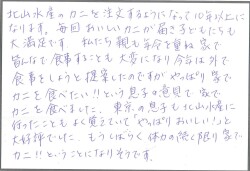 北山水産のカニを注文するようになって10年以上に
なります。毎回おいしいカニが届き子どもたちも
大満足です。私たち親も年令を重ね家で
皆なで食事することも大変になり今年は外で
食事をしようと提案したのですがやっぱり家で
カニを食べたい!!という息子の意見で家で
カニを食べました。東京の息子も北山水産に
行ったこともよく覚えていて「やっぱりおいしい!」と
大好評でした。もうしばらく体力の続く限り家で
カニ!!ということになりそうです。